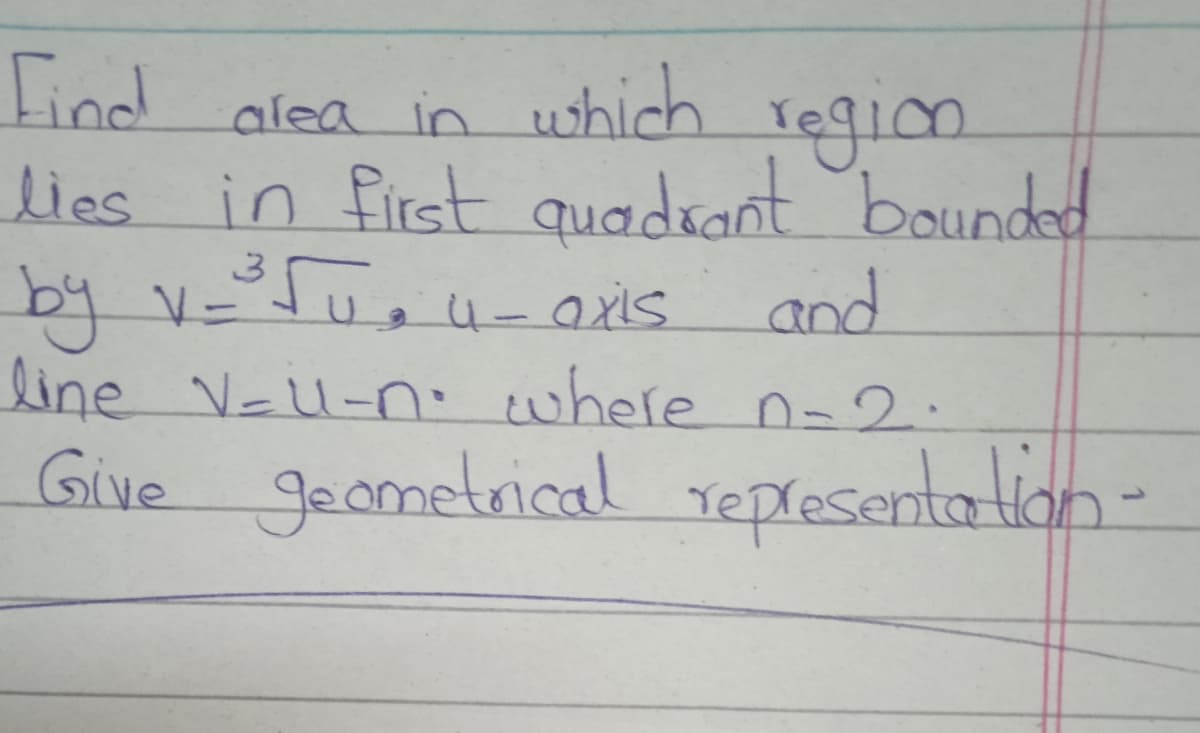 Find area in which region
lies in first quadrant bounded
by v=³√u, u-axis and
line v=u-n. where n=2.
Give geometrical representation-